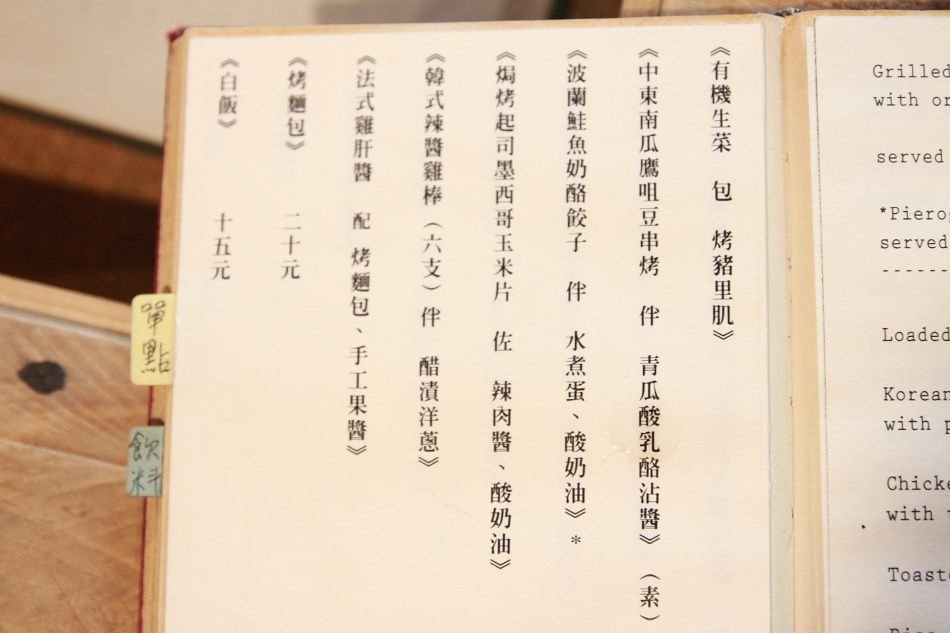 《有機生菜 包 烤豬里肌》
《中東南瓜鷹咀豆串烤 伴 青瓜酸乳酪沾醬》（素）
《波蘭鮭魚奶酪餃子 伴 水煮蛋、酸奶油》*
《焗烤起司墨西哥玉米片 佐 辣肉醬、酸奶油》
《韓式辣醬雞棒（六支）伴 醋漬洋蔥》
《法式雞肝醬 配 烤麵包、手工果醬》
《烤麵包》 二十元
《白飯》 十五元
單點
飲料
Grilled
with or
served
*Pierog
served
------
Loaded
Korean
with p
Chicke
with
Toaste